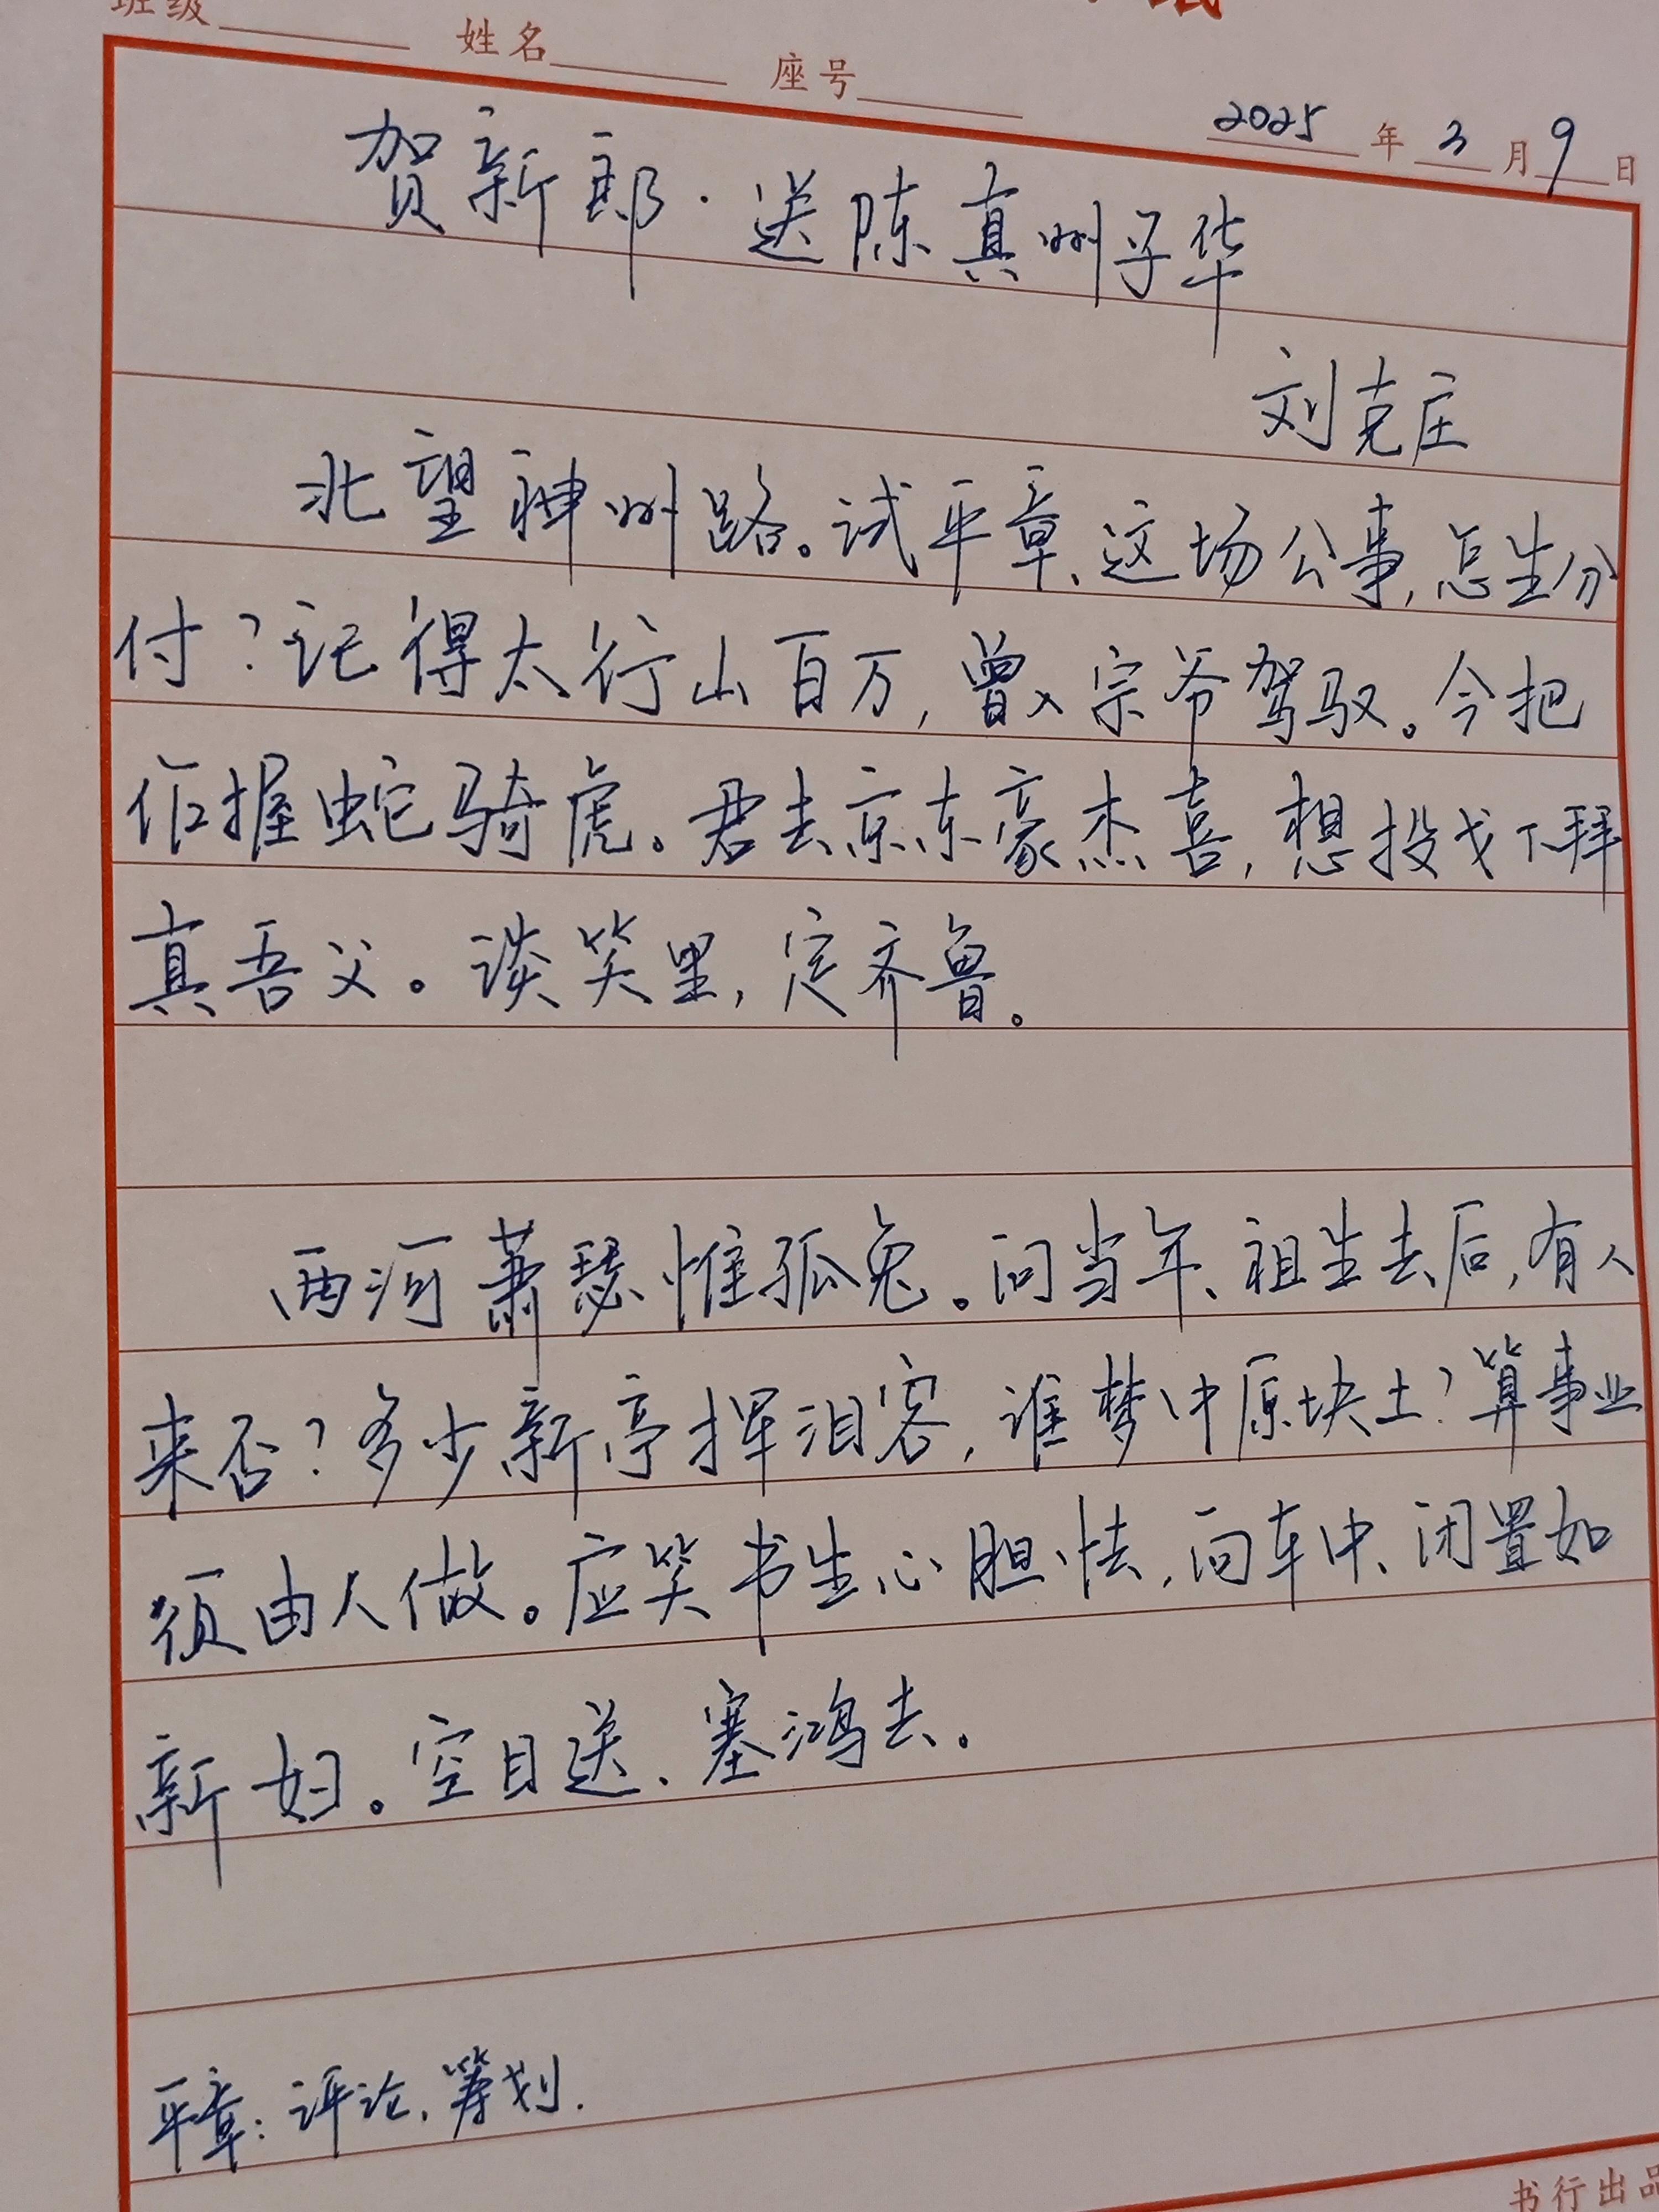 班级 姓名 座号
2025年3月9日
贺新郎·送陈真州子华
刘克庄
北望神州路。试平章、这场公事,怎生分
付?记得太行山百万,曾入宗爷驾驭。今把
作握蛇骑虎。君去京东豪杰喜,想投戈下拜
真吾父。谈笑里,定齐鲁。
两河萧瑟惟狐兔。问当年、祖生去后,有人
来否?多少新亭挥泪客,谁梦中原块土?算事业
须由人做。应笑书生心胆怯,向车中、闭置如
新妇。空目送、塞鸿去。
平章:评论、筹划.
书行出品